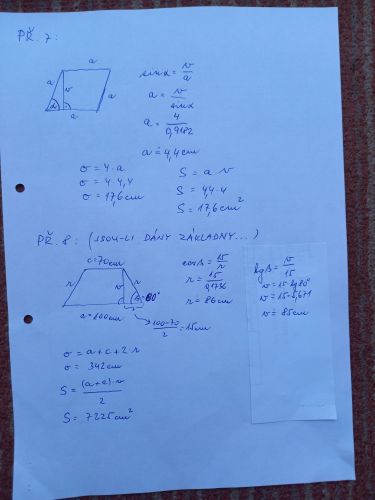 PŘ. 7:
a
a
v
a
α
a
sinα = v/a
a = v/sinα
a = 4/0,9182
a ≐ 4,4cm
σ = 4·a
σ = 4·4,4
σ = 17,6cm
S = a·v
S = 4,4·4
S = 17,6cm²
PŘ. 8: (JSOU-LI DÁNY ZÁKLADNY...)
c=70cm
r
v
r
β=80°
a=100cm
(100-70)/2=15cm
cosβ = 15/r
r = 15/0,1736
r = 86cm
tgβ = v/15
v = 15·tg80°
v = 15·5,671
v = 85cm
σ = a+c+2·r
σ = 342cm
S = (a+c)·v/2
S = 7225cm²